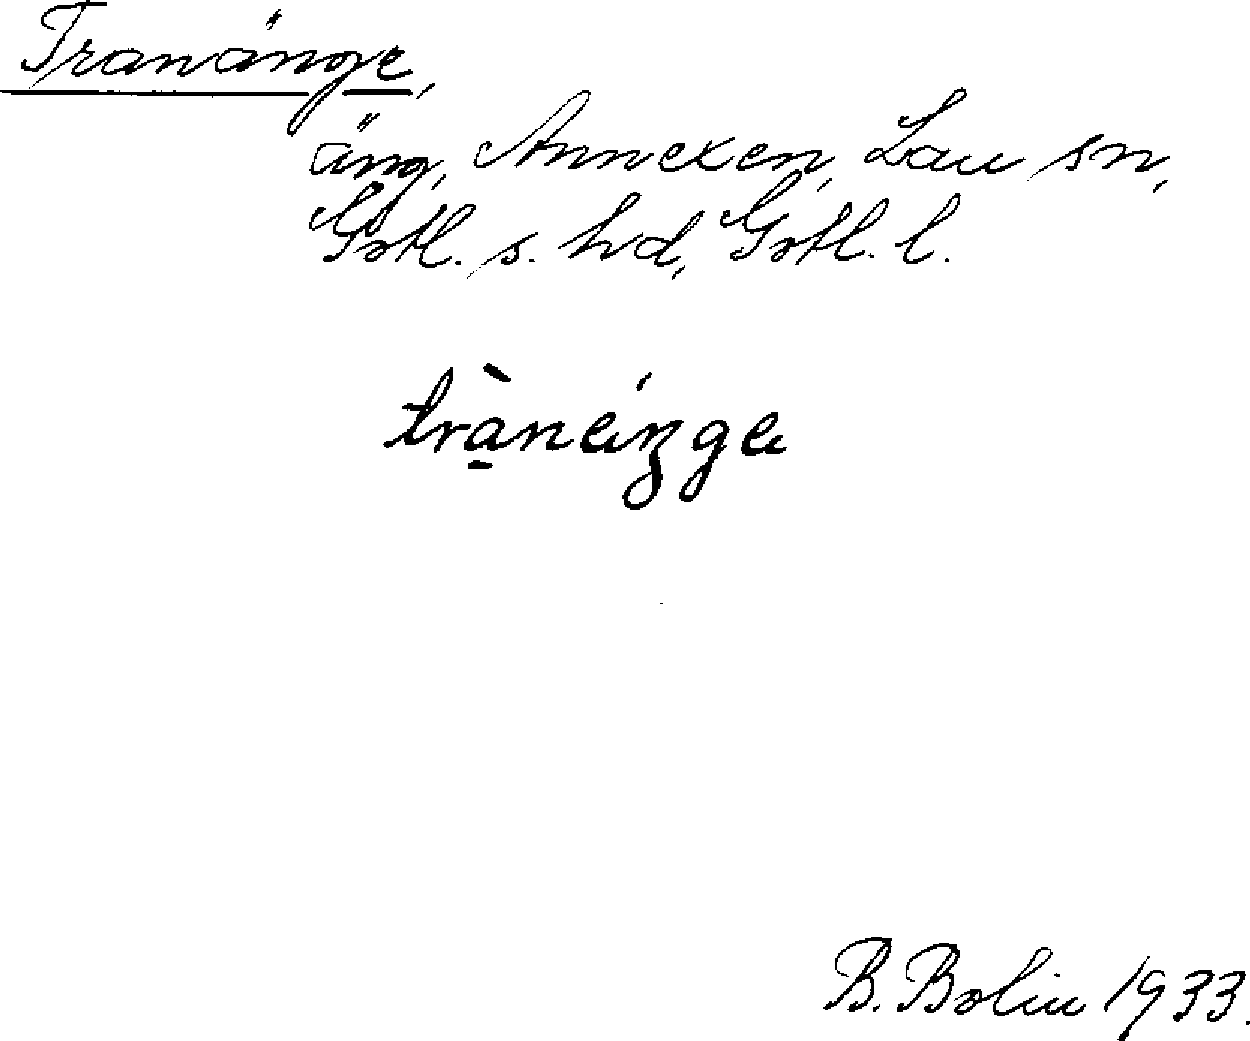 Tranänge,
äng, Annexen, Lau sn,
Gotl. s. hd, Gotl. l.
B. Bolin 1933.